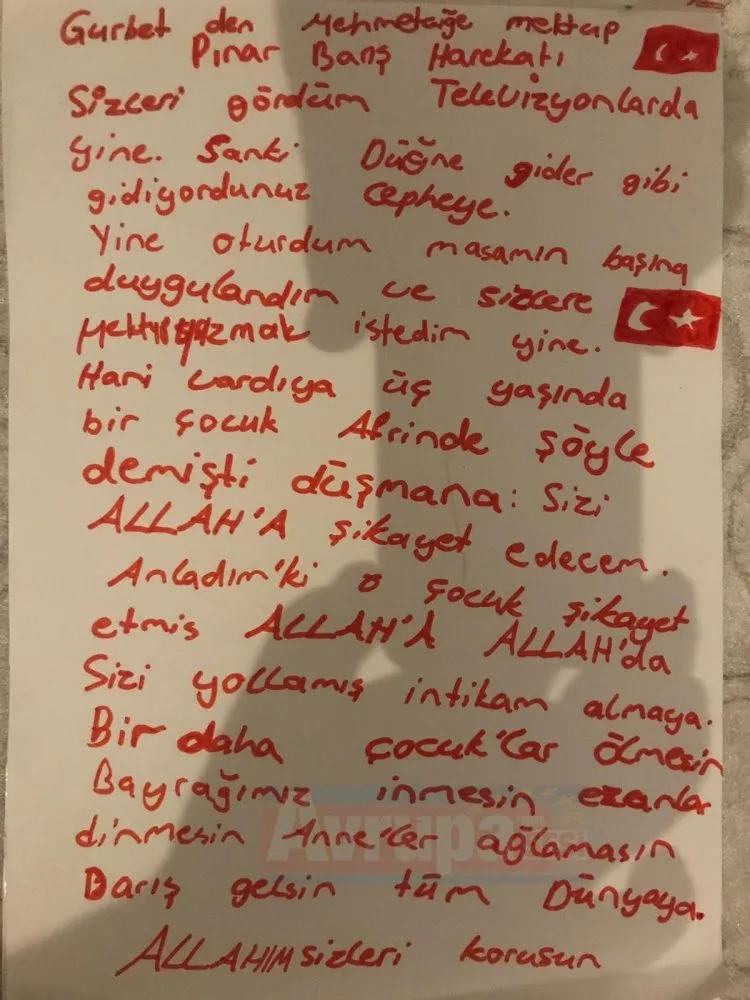 Gurbet den Mehmetciğe mektup
Pınar Barış Harekatı
Sizleri gördüm Televizyonlarda
yine. Sanki Düğne gider gibi
gidiyordunuz Cepheye.
Yine oturdum masamın başına
duygulandım ve sizlere
Mektup yazmak istedim yine.
Hani vardıya üç yaşında
bir çocuk Afrinde şöyle
demişti düşmana: Sizi
ALLAH'A şikayet edecem.
Anladım'ki o çocuk şikayet
etmis ALLAH'A ALLAH'da
Sizi yollamış intikam almaya.
Bir daha çocuk'lar ölmesin
Bayrağımız inmesin ezanlar
dinmesin Anne'ler ağlamasın
Barış gelsin tüm Dünyaya.
ALLAHIM sizleri korusun
Avrupa